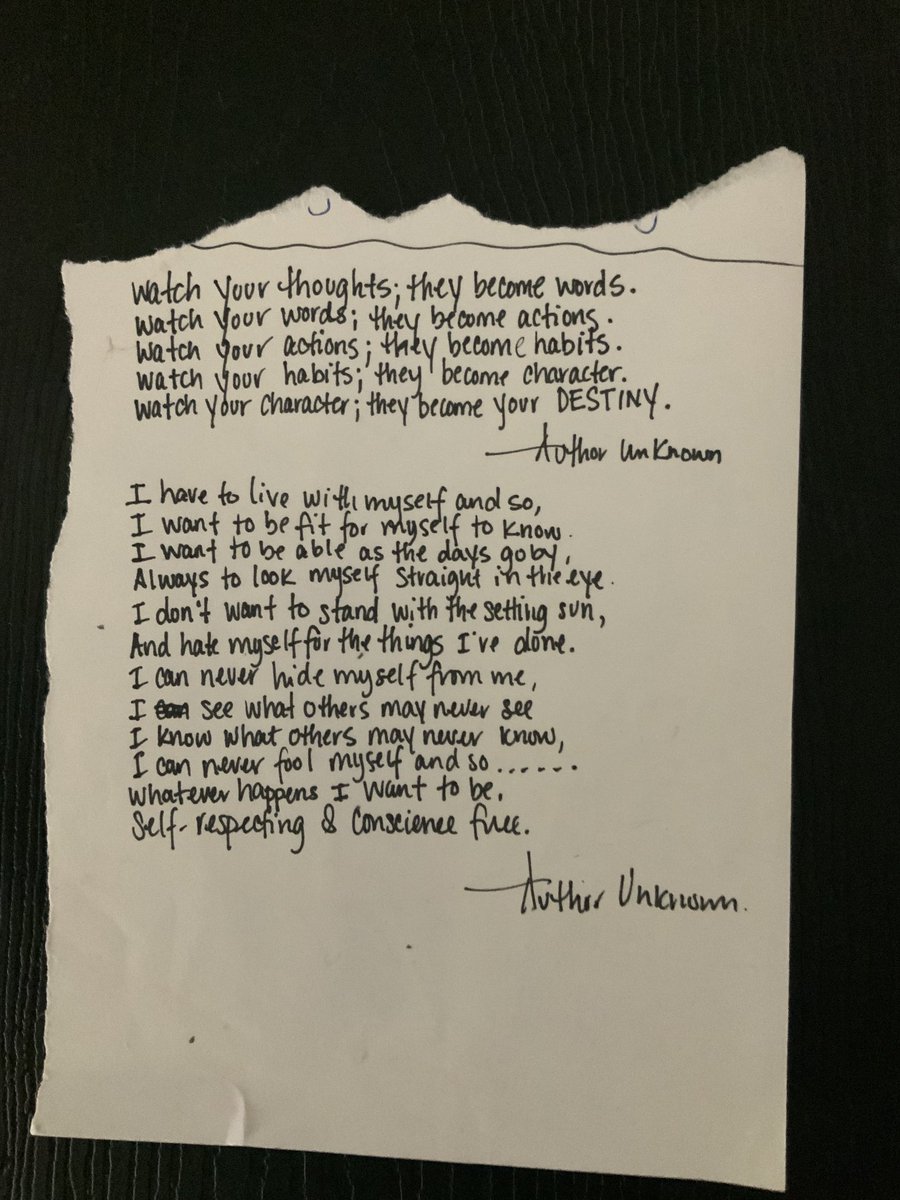 Watch your thoughts; they become words.
Watch your words; they become actions.
Watch your actions; they become habits.
Watch your habits; they become character.
Watch your character; they become your DESTINY.
Author Unknown
I have to live with myself and so,
I want to be fit for myself to know.
I want to be able as the days go by,
Always to look myself straight in the eye.
I don't want to stand with the setting sun,
And hate myself for the things I've done.
I can never hide myself from me,
I see what others may never see
I know what others may never know,
I can never fool myself and so......
Whatever happens I want to be,
Self-respecting & Conscience free.
Author Unknown.